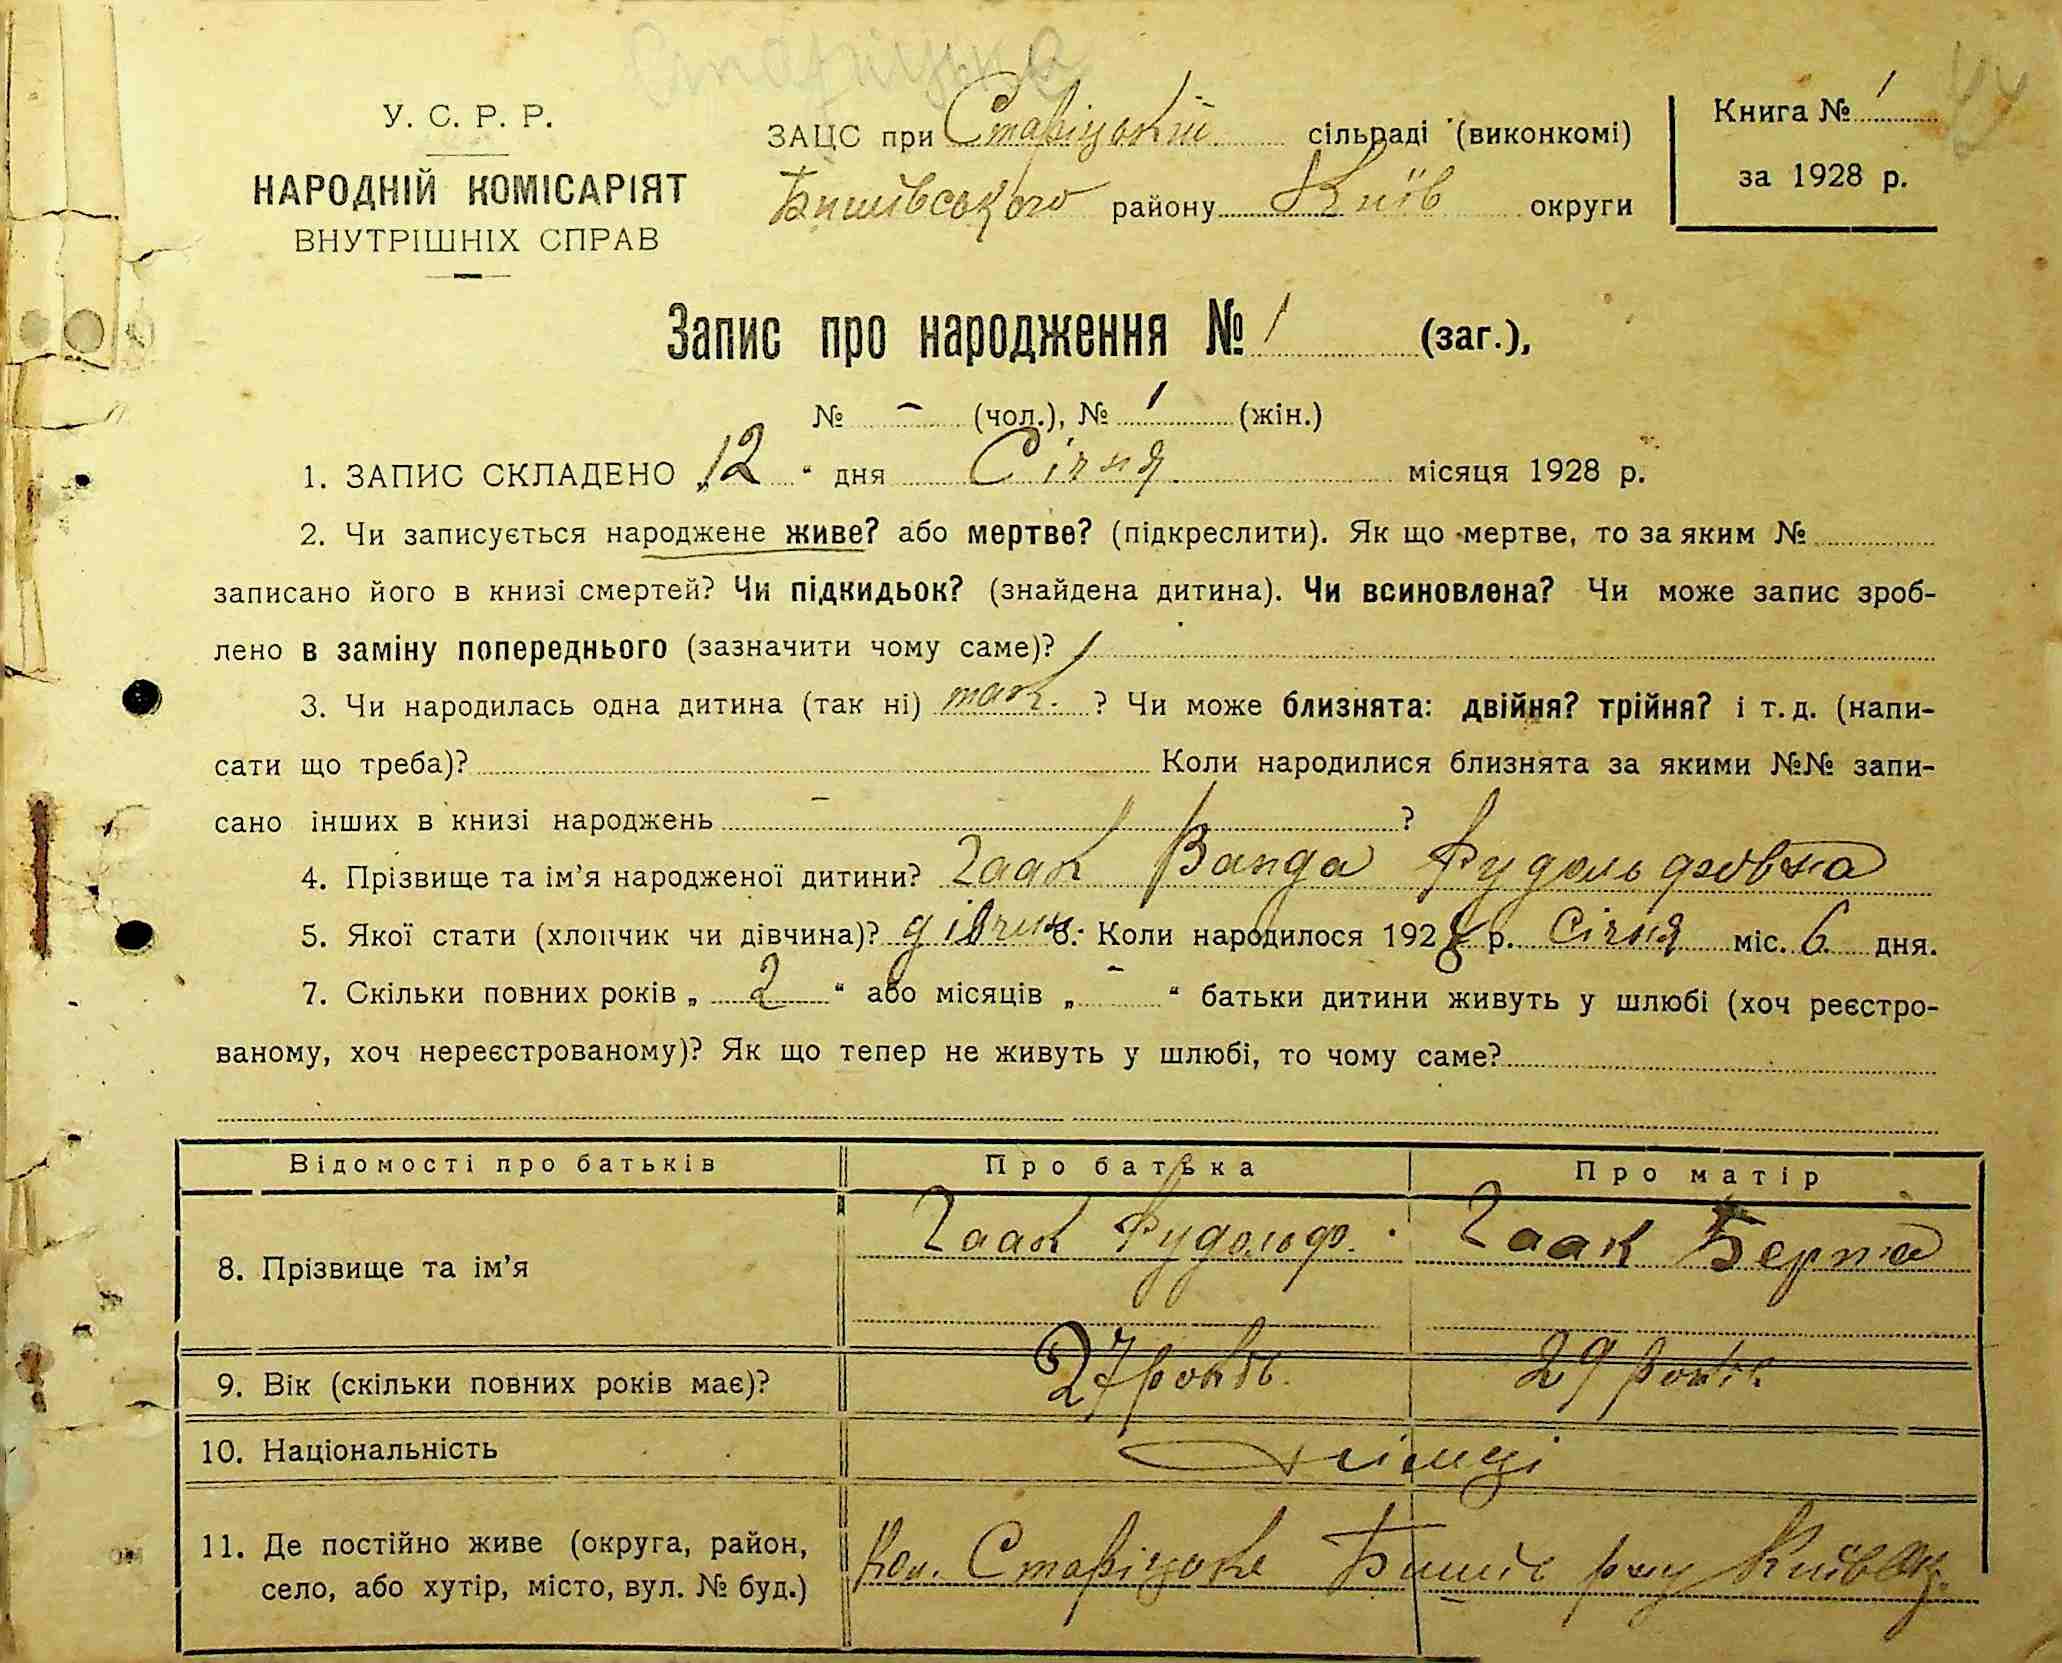 Старіцька
У. С. Р. Р.
НАРОДНІЙ КОМІСАРІЯТ
ВНУТРІШНІХ СПРАВ
ЗАЦС при Старіцькій сільраді (виконкомі)
Бишівського району Київ округи
Книга № 1
за 1928 р.
44
Запис про народження № 1 (заг.),
№ - (чол.), № 1 (жін.)
1. ЗАПИС СКЛАДЕНО „12“ дня Січня місяця 1928 р.
2. Чи записується народжене живе? або мертве? (підкреслити). Як що мертве, то за яким №
записано його в книзі смертей? Чи підкидьок? (знайдена дитина). Чи всиновлена? Чи може запис зроб-
лено в заміну попереднього (зазначити чому саме)?
3. Чи народилась одна дитина (так ні) так. ? Чи може близнята: двійня? трійня? і т. д. (напи-
сати що треба)? Коли народилися близнята за якими №№ запи-
сано інших в книзі народжень - ?
4. Прізвище та ім'я народженої дитини? Гаак Ванда Рудольфовна
5. Якої стати (хлопчик чи дівчина)? дівчин. 6. Коли народилося 1928 р. Січня міс. 6 дня.
7. Скільки повних років „ 2 “ або місяців „ - “ батьки дитини живуть у шлюбі (хоч реєстро-
ваному, хоч нереєстрованому)? Як що тепер не живуть у шлюбі, то чому саме?
Відомості про батьків Про батька Про матір
8. Прізвище та ім'я Гаак Рудольф. Гаак Берта
9. Вік (скільки повних років має)? 27 років. 29 років
10. Національність німці
11. Де постійно живе (округа, район,
село, або хутір, місто, вул. № буд.)
Кол. Старіцька Бишів р-ну Київ окр.